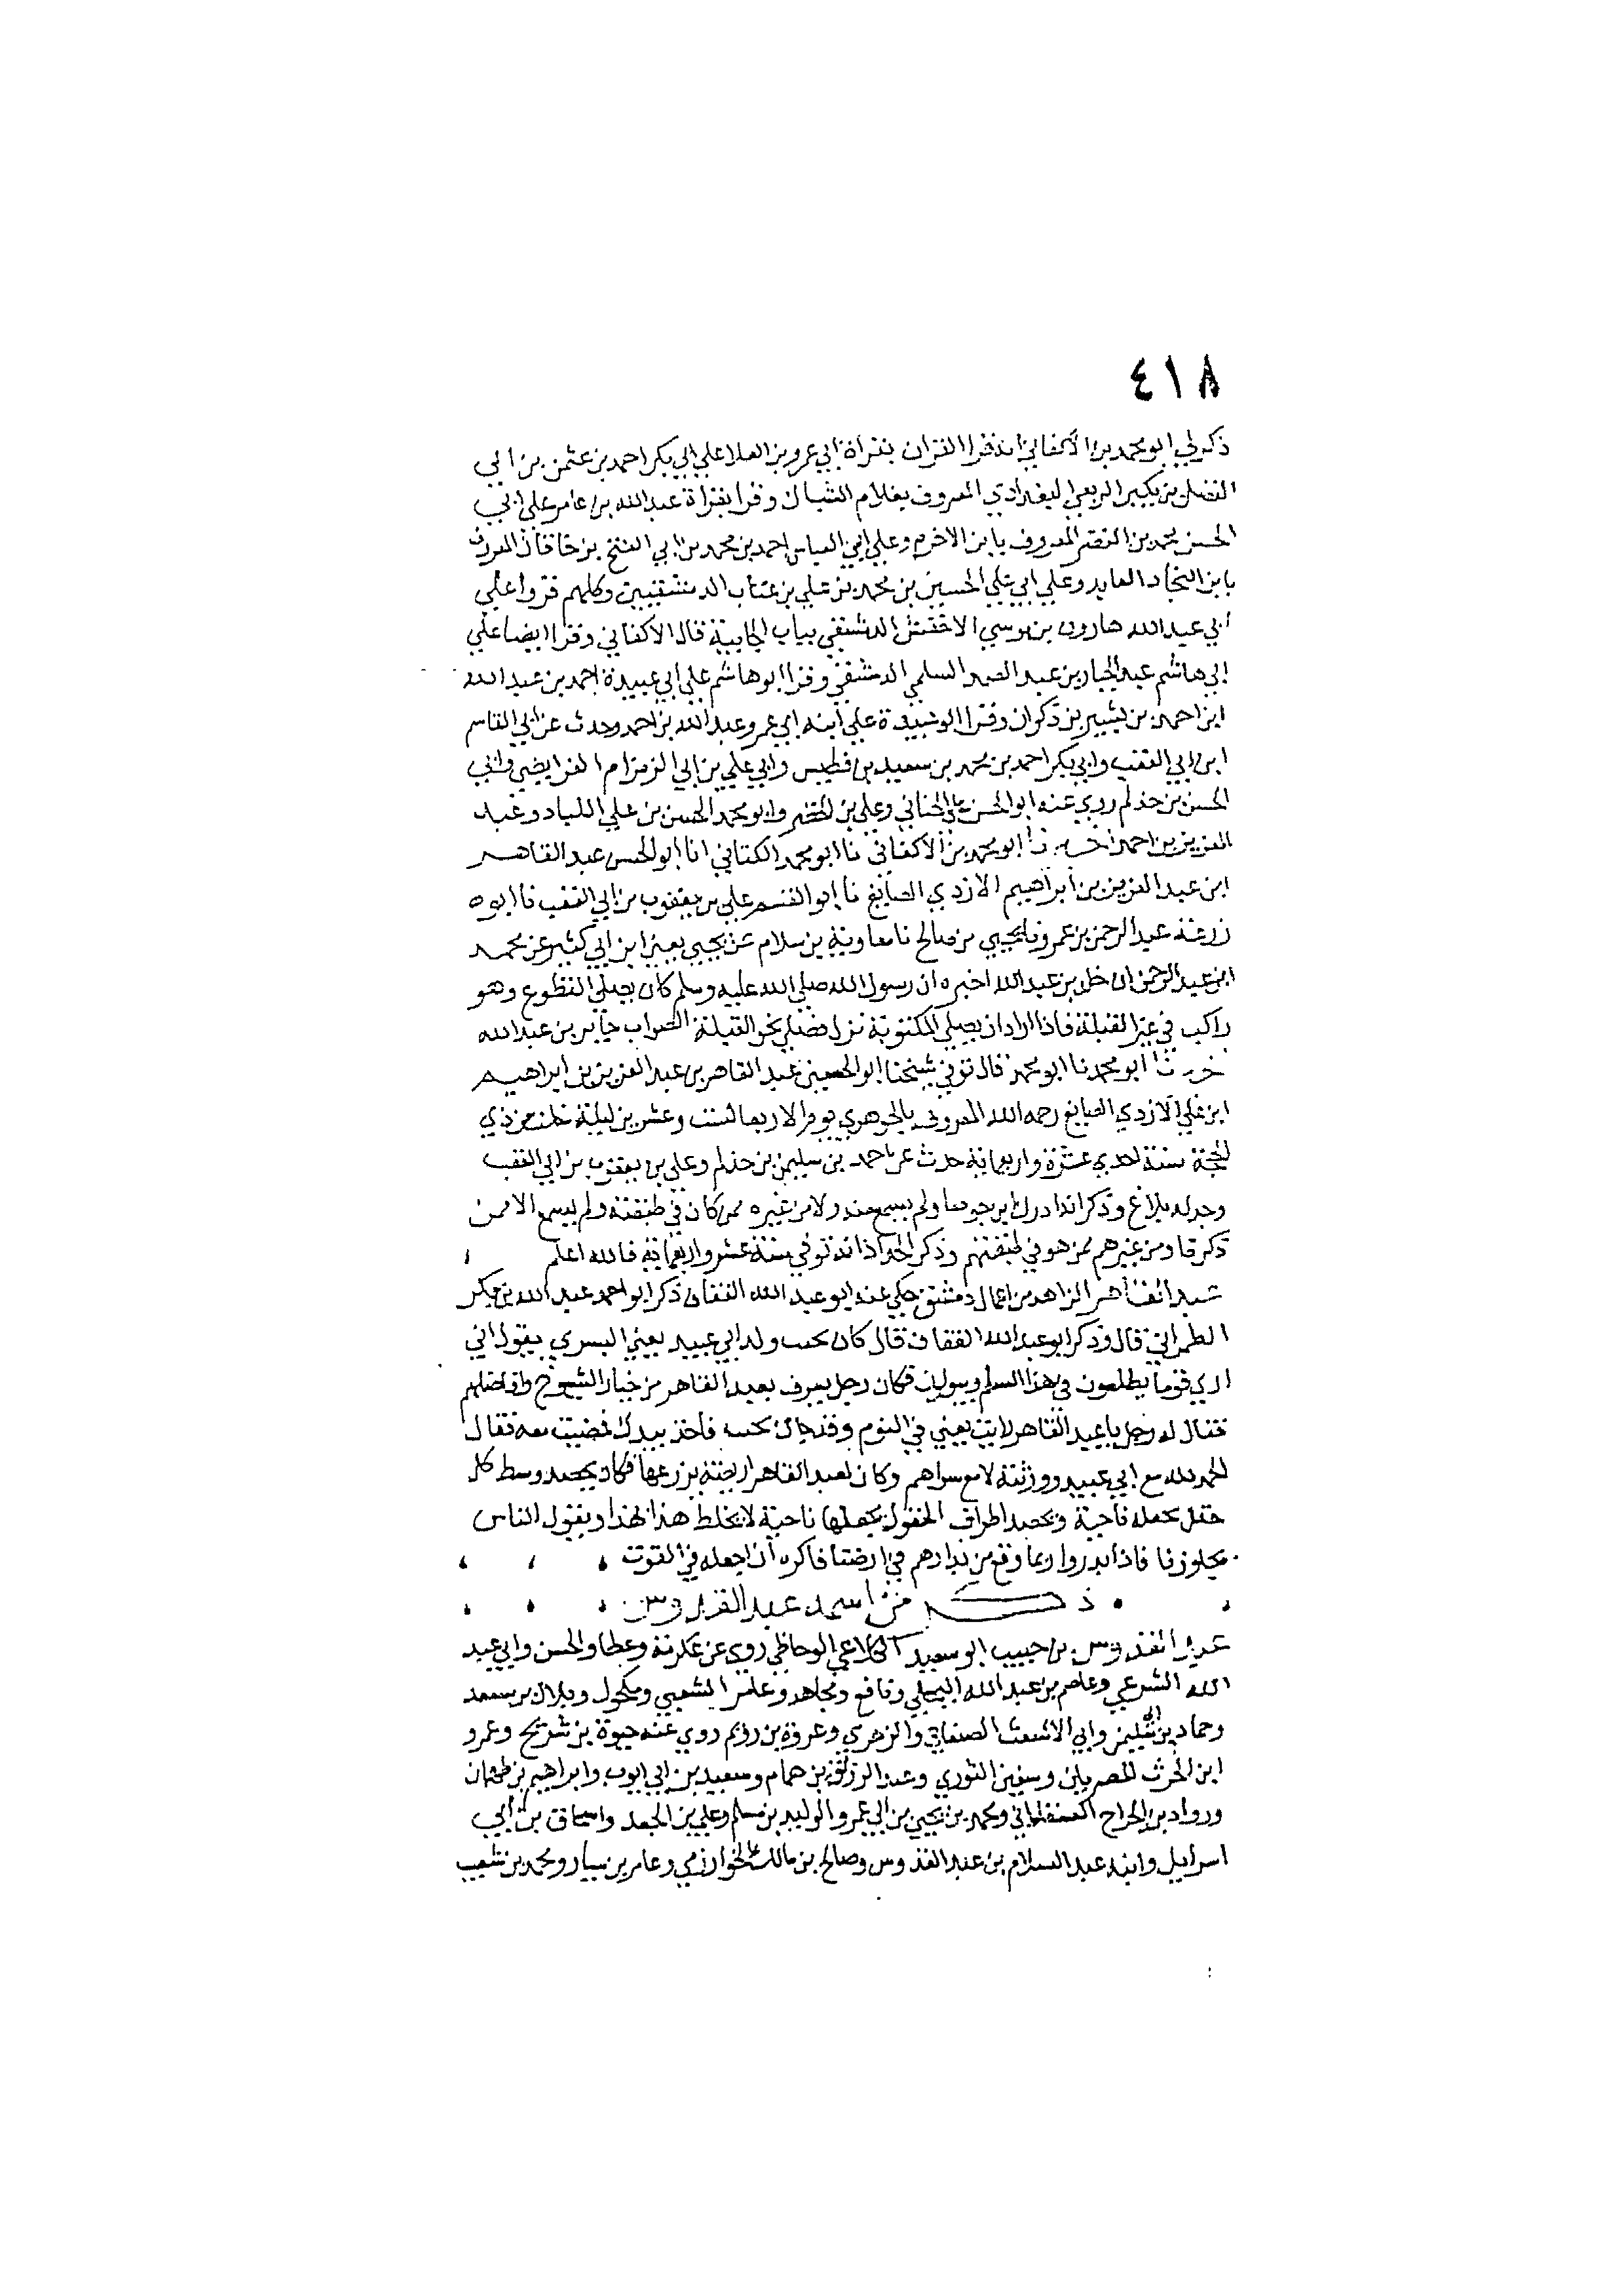 ٤١٨
ذكر لي ابو محمد بن الاكفاني انه قرا القران بقراة ابي عمرو بن العلا علي ابي بكر احمد بن عثمن بن ابي
الفضل بن بكير الربعي البغدادي المعروف بغلام الشباك وقرا بقراة عبد الله بن عامر علي ابي
الحسن محمد بن النضر المعروف بابن الاخرم وعلي ابي العباس احمد بن محمد بن ابي الفتح بن خاقان المعروف
بابن النجاد العابد وعلي ابي علي الحسين بن محمد بن علي بن عتاب الدمشقيين وكلهم قروا علي
ابي عبد الله هارون بن موسي الاخفش الدمشقي بباب الجابية قال الاكفاني وقرا ايضا علي
ابي هاشم عبد الجبار بن عبد الصمد السلمي الدمشقي وقرا ابو هاشم علي ابي عبيدة احمد بن عبد الله
ابن احمد بن بشير بن ذكوان وقرا ابو عبيدة علي ابنه ابي عمرو عبد الله بن احمد وحدث عن ابي القاسم
ابن ابي العقب وابي بكر احمد بن محمد بن سعيد بن فطيس وابي علي بن ابي الزمزام الفرايضي وابي
الحسن بن حذلم روي عنه ابو الحسن علي الحنائي وعلي بن الخضر وابو محمد الحسن بن علي اللباد وعبد
العزيز بن احمد اخبرنا ابو محمد بن الاكفاني نا ابو محمد الكتاني انا ابو الحسن عبد القاهر
ابن عبد العزيز بن ابراهيم الازدي الصايغ نا ابو القسم علي بن يعقوب بن ابي العقب نا ابو
زرعة عبد الرحمن بن عمرو نا يحيي بن صالح نا معاوية بن سلام عن يحيي يعني ابن ابي كثير عن محمد
ابن عبد الرحمن ان خلد بن عبد الله اخبره ان رسول الله صلي الله عليه وسلم كان يصلي التطوع وهو
راكب في غير القبلة فاذا اراد ان يصلي المكتوبة نزل فصلي نحو القبلة الصواب جابر بن عبد الله
اخبرنا ابو محمد نا ابو محمد قال توفي شيخنا ابو الحسين عبد القاهر بن عبد العزيز بن ابراهيم
ابن علي الازدي الصايغ رحمه الله المعروف بالجوهري يوم الاربعا لست وعشرين ليلة خلت من ذي
الحجة سنة احدي عشرة واربعماية حدث عن احمد بن سليمن بن حذلم وعلي بن يعقوب بن ابي العقب
وجد له بلاغ وذكر انه ادرك ابن جوصا ولم يسمع منه ولا من غيره ممن كان في طبقته ولم يسمع الا ممن
ذكرنا ومن غيرهم ممن هو في طبقتهم وذكر الحداد انه توفي سنة عشر واربعماية فالله اعلم
عبد القاهر الزاهد من اعمال دمشق حكي عنه ابو عبد الله القفان ذكر ابو احمد عبد الله بن بكر
الطبراني قال وذكر ابو عبد الله القفان قال كان نجيب ولد ابي عبيد يعني البسري يقول اني
اري قوما يطلعون في هذا السلم ويبولون فكان رجل يعرف بعبد القاهر من خيار الشيوخ وافاضلهم
فقال له رجل يا عبد القاهر رايت يعني في النوم وقد جاك نجيب فاخذ بيدك فمضيت معه فقال
الحمد لله مع ابي عبيد وورثته لا مع سواهم وكان لعبد القاهر ارض يزرعها فكان يحصد وسط كل
حقل يجعله ناحية ويحصد اطراف الحقول يجعلها ناحية لا يخلط هذا بهذا ويقول الناس
يجاورونا فاذا بدروا ربما وقع من بدارهم في ارضنا فاكره ان اجعله في القوت
ذكر من اسمه عبد القدوس
عبد القدوس بن حبيب ابو سعيد الكلاعي الوحاظي روي عن عكرمة وعطا والحسن وابي عبد
الله الشرعبي وعاصم بن عبد الله البجلي ونافع ومجاهد وعامر الشعبي ومكحول وبلال بن سعد
وحماد بن ابي سليمن وابي الاشعث الصنعاني والزهري وعروة بن رويم روي عنه حيوة بن شريح وعمرو
ابن الحرث المصريان وسفين الثوري وعبد الرزاق بن همام وسعيد بن ابي ايوب وابراهيم بن طهمان
ورواد بن الجراح العسقلاني ومحمد بن يحيي بن ابي عمر والوليد بن مسلم وعلي بن الجعد واسحاق بن ابي
اسرايل وابنه عبد السلام بن عبد القدوس وصالح بن مالك الخوارزمي وعامر بن سيار ومحمد بن شعيب